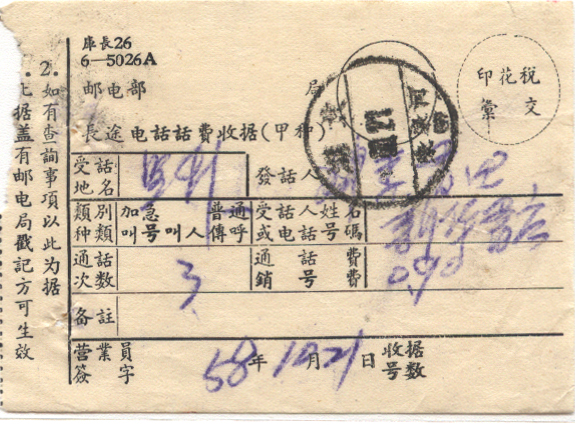 库長26
6—5026A
邮电部 局
長途电話話費收据(甲种)
印花税
彙 交
受話地名 發話人
類別种類 加急叫号 叫人 普通傳呼 受話人姓名或电話号碼
通話次数 3 通話費銷号費 0.90
备註
营業員签字 58年10月21日 收据号数
2.如有查詢事項以此为据
1.此据盖有邮电局戳記方可生效